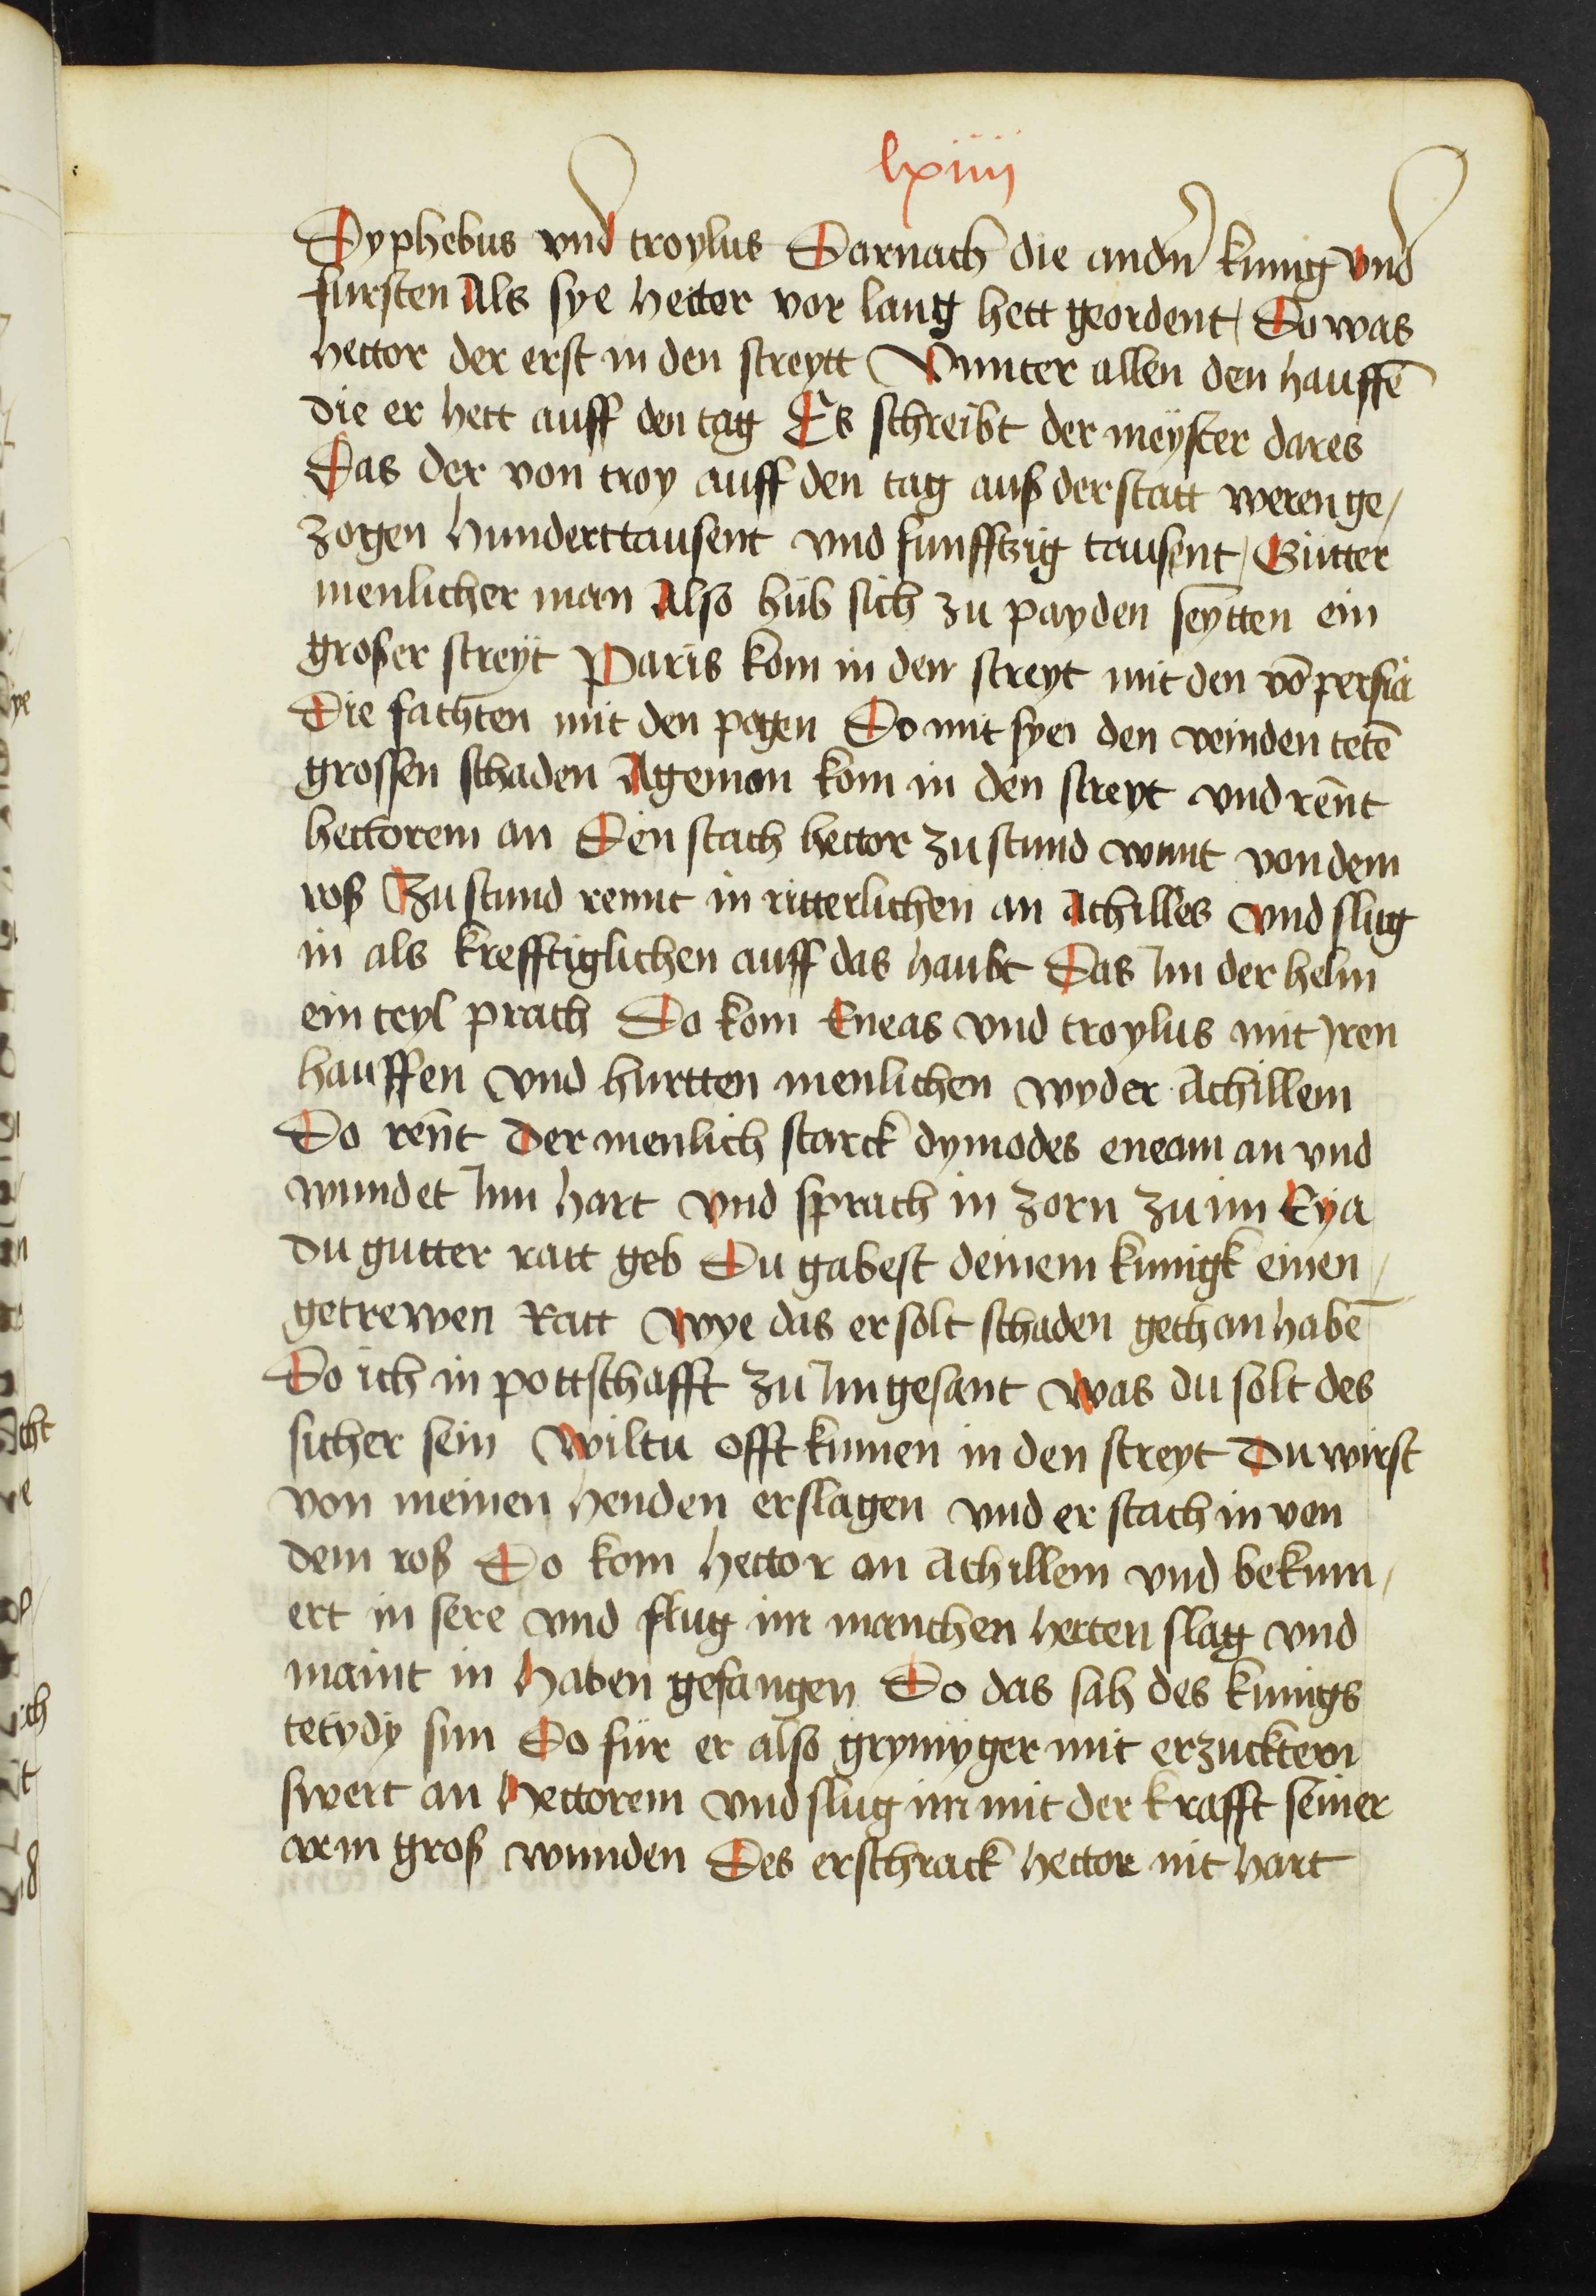 lxiiii
Dyphebus vnd troylus Darnach die andn̄ kunig vnd
fursten Als sye hector vor lang hett geordent / Do was
hector der erst in den streytt Vnnter allen den hauffē
die er hett auff den tag Es schreibt der meyster dares
Das der von troy auff den tag auß der statt weren ge/
zogen hunderttausent vnd funfftzig tausent / Gutter
menlicher man Also hub sich zu payden seytten ein
großer streyt Paris kom in den streyt mit den vō persia
Die fachten mit den pogen Do mit syen den veinden tetē
grossen schaden Agemon kom in den streyt vnd reñt
hectorem an Den stach hector zu stund wunt von dem
roß Zu stund rennt in ritterlichen an Achilles vnd slug
in als krefftiglichen auff das haubt Das Jm der helm
ein teyl prach Do kom Eneas vnd troylus mit Jren
hauffen vnd hurtten menlichen wyder Achillem
Do reñt der menlich starck dymodes eneam an vnd
wundet Jnn hart vnd sprach in zorn zu im Eya
du gutter ratt geb Du gabest deinem kunigk einen /
getrewen Ratt wye das er solt schaden gethan habē
Do ich in pottschafft zu Jm gesant was du solt des
sicher sein wiltu offt kumen in den streyt Du wirst
von meinen henden erslagen vnd er stach in von
dem roß Do kom hector an Achillem vnd bekum/
ert in sere vnd slug im manchen herten slag vnd
maint in haben gefangen Do das sah des kunigs
tetydy sun Do fur er also grymyger mit erzucktem
swert an hectorem vnd slug im mit der krafft seiner
arm groß wunden Des erschrack hector nit hart